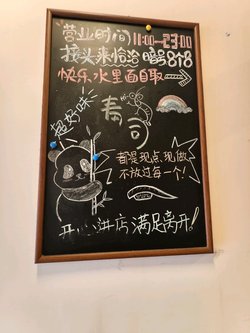 营业时间 11:00-23:00
接头来恰洽 暗号8个8
快乐水里面自取
超好味
寿司
都是现点现做
不放过每一个!
开心进店 满足离开!